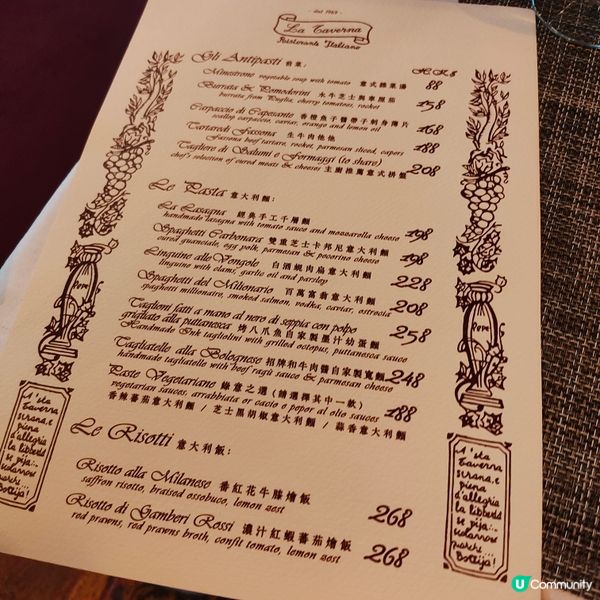 - dal 1969 -
La Taverna
Ristorante Italiano
Gli Antipasti 前菜:
HK$
Minestrone vegetable soup with tomato 意式雜菜湯 88
Burrata & Pomodorini 水牛芝士與車厘茄 158
burrata from Puglia, cherry tomatoes, rocket
Carpaccio di Capesante 香橙魚子醬帶子刺身薄片 168
scallop carpaccio, caviar, orange and lemon oil
Tartare di Fassona 生牛肉他他 188
Fassona beef tartare, rocket, parmesan sliced, capers
Tagliere di Salumi e Formaggi (to share) 208
chef's selection of cured meats & cheeses 主廚推薦意式拼盤
Le Pasta 意大利麵:
La Lasagna 經典手工千層麵 198
handmade lasagna with tomato sauce and mozzarella cheese
Spaghetti Carbonara 雙重芝士卡邦尼意大利麵 198
cured guanciale, egg yolk, parmesan & pecorino cheese
Linguine alle Vongole 白酒蜆肉扁意大利麵 228
linguine with clams, garlic oil and parsley
Spaghetti del Milionario 百萬富翁意大利麵 208
spaghetti millionaire, smoked salmon, vodka, caviar, ostrocia
Taglioni fatti a mano al nero di seppia con polpo
grigliato alla puttanesca 烤八爪魚自家製墨汁幼蛋麵 258
Handmade Ink tagliolini with grilled octopus, puttanesca sauce
Tagliatelle alla Bolognese 招牌和牛肉醬自家製寬麵 248
handmade tagliatelle with beef ragù sauce & parmesan cheese
Paste Vegetariane 綠意之選 (請選擇其中一款) 188
vegetarian sauces, arrabbiata or cacio e pepe or al olio sauces
香辣蕃茄意大利麵 / 芝士黑胡椒意大利麵 / 蒜香意大利麵
Le Risotti 意大利飯:
Risotto alla Milanese 番紅花牛膝燴飯 268
saffron risotto, braised ossobuco, lemon zest
Risotto di Gamberi Rossi 濃汁紅蝦蕃茄燴飯 268
red prawns, red prawns broth, confit tomato, lemon zest
A 'sta
Taverna
serana, e
piena
d'allegria
la libbertà
se pija...
Bottija!
A 'sta
Taverna
serana, e
piena
d'allegria
la libbertà
se pija...
Bottija!
U Community